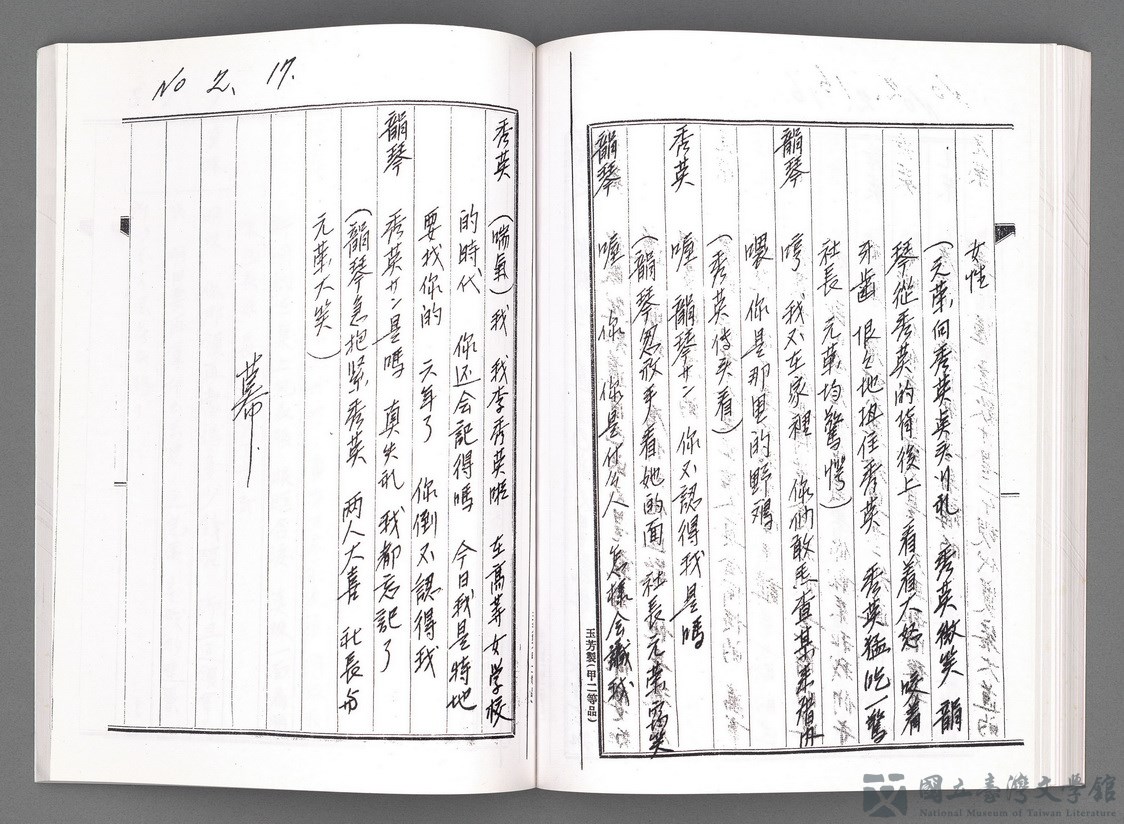 女性
(元華向秀英点头行礼 秀英微笑 韻
琴從秀英的背後上 看着大妒 咬着
牙齒 恨々地抓住秀英 秀英猛吃一驚
社長 元華均驚愕)
韻琴 哼 我不在家裡 你們敢
喂 你是那里的野鶏
(秀英侍头看)
秀英 喔 韻琴サン 你不認得我是嗎
(韻琴忽放手看她的面 社長元華窃笑
韻琴 喔 你 你是什么人 怎樣会識我
玉芳製(甲二等品)
No 2、17.
秀英 (喘氣)我 我李秀英啦 在高等女学校
的時代 你还会記得嗎 今日我是特地
要找你的 六年了 你倒不認得我
韻琴 秀英サン是嗎 真失礼 我都忘記了
(韻琴急抱緊秀英 两人大喜 社長与
元華大笑)
幕
國立臺灣文學館
National Museum of Taiwan Literature